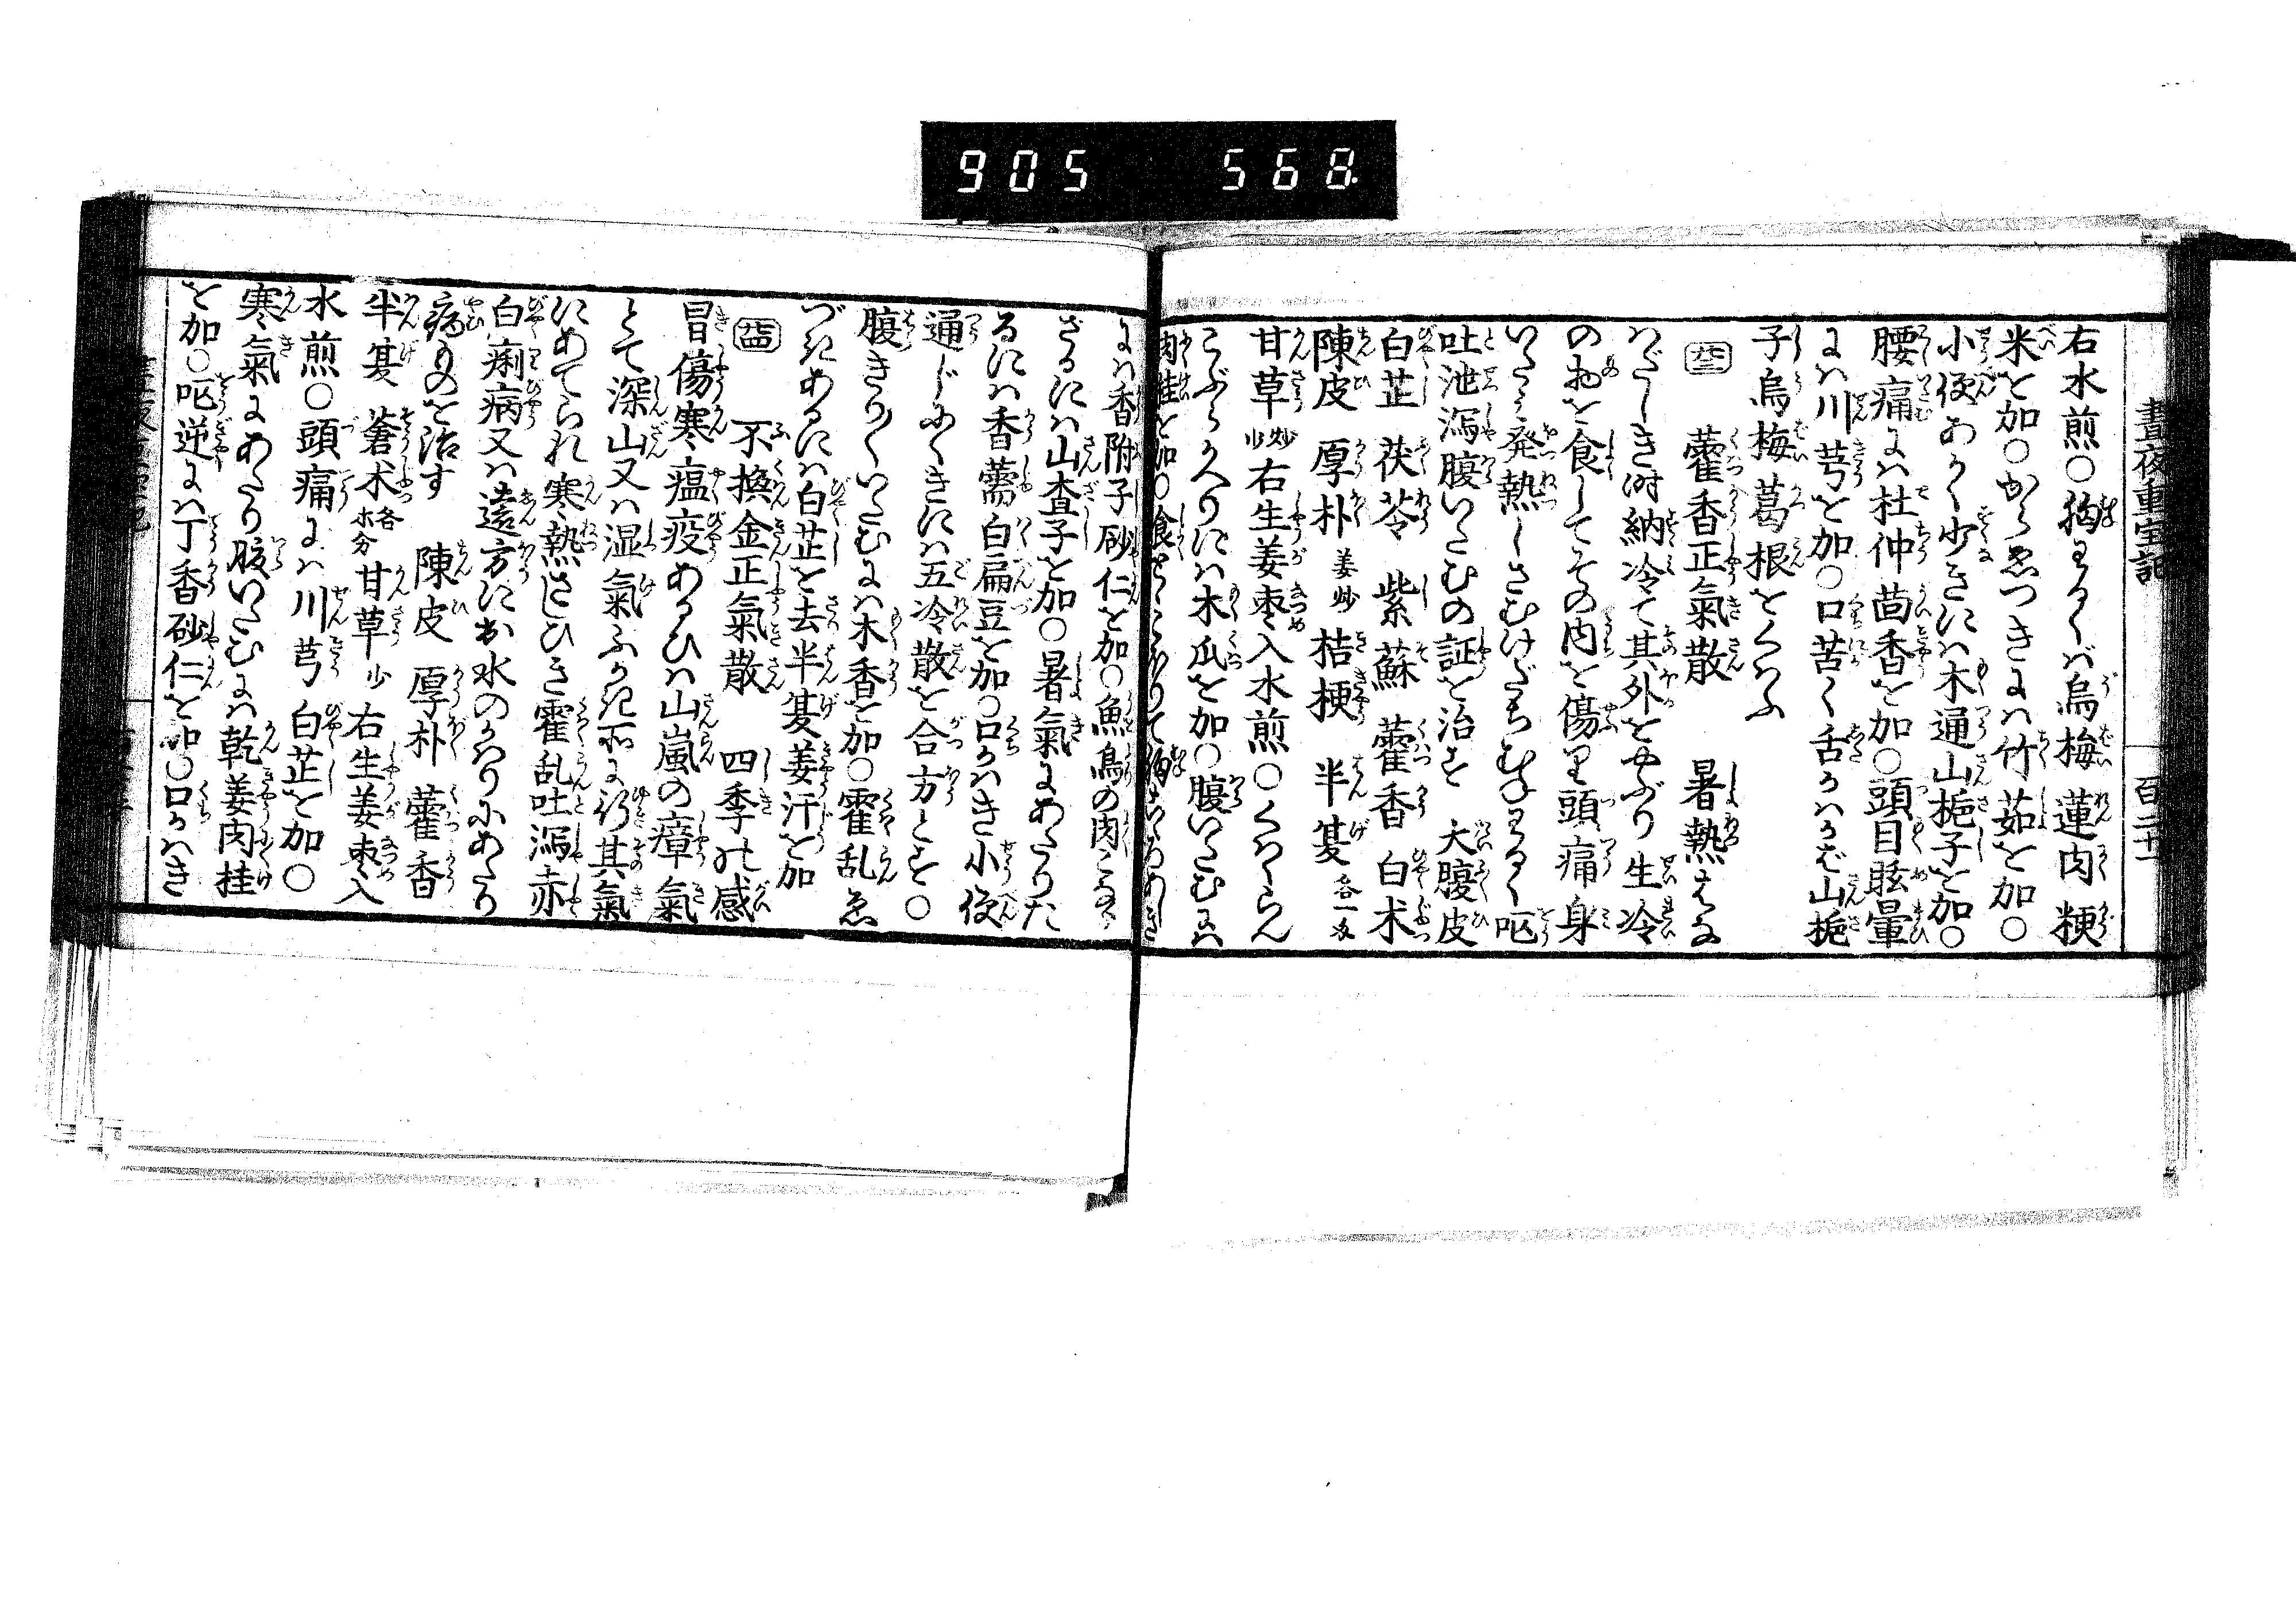 905 568
晝夜重宝記 百二十一
右水煎○胸わるくバ烏梅蓮肉粳
米を加○からゑづきにハ竹茹を加○
小便あかく少きにハ木通山梔子を加○
腰痛にハ杜仲茴香を加○頭目眩暈
にハ川芎を加○口苦く舌かハかバ山梔
子烏梅葛根をくハふ
藿香正氣散 暑熱はな
ハだしき時納冷て其外をやぶり生冷
の物を食してその内を傷り頭痛身
いたミ発熱しさむけだちむねわるく嘔
吐泄瀉腹いたむの証を治す 大腹皮
白芷 茯苓 紫蘇 藿香 白朮
陳皮 厚朴姜炒 桔梗 半夏各一匁
甘草炒少右生姜棗入水煎○くハくらん
こぶらかへりにハ木瓜を加○腹いたむにハ
肉桂を加○食とゞこほりて胸
にハ香附子砂仁を加○魚鳥の肉こなれ
ざるにハ山査子を加○暑氣にあたりた
るにハ香薷白扁豆を加○口かハき小便
通じにくきにハ五冷散を合方とす○
腹きり〱いたむにハ木香を加○霍乱ゑ
づきあるにハ白芷を去半夏姜汁を加
不換金正氣散 四季の感
冒傷寒瘟疫あるひハ山嵐の瘴氣
とて深山又ハ湿氣ふかき所に行其氣
にあてられ寒熱さしひき霍乱吐瀉赤
白痢病又ハ遠方に出水のかハりにあたり
病ものを治す 陳皮 厚朴 藿香
半夏 蒼朮各等分 甘草少 右生姜棗入
水煎○頭痛にハ川芎 白芷を加○
寒氣にあたり腹いたむにハ乾姜肉桂
を加○嘔逆にハ丁香砂仁を加○口かハき